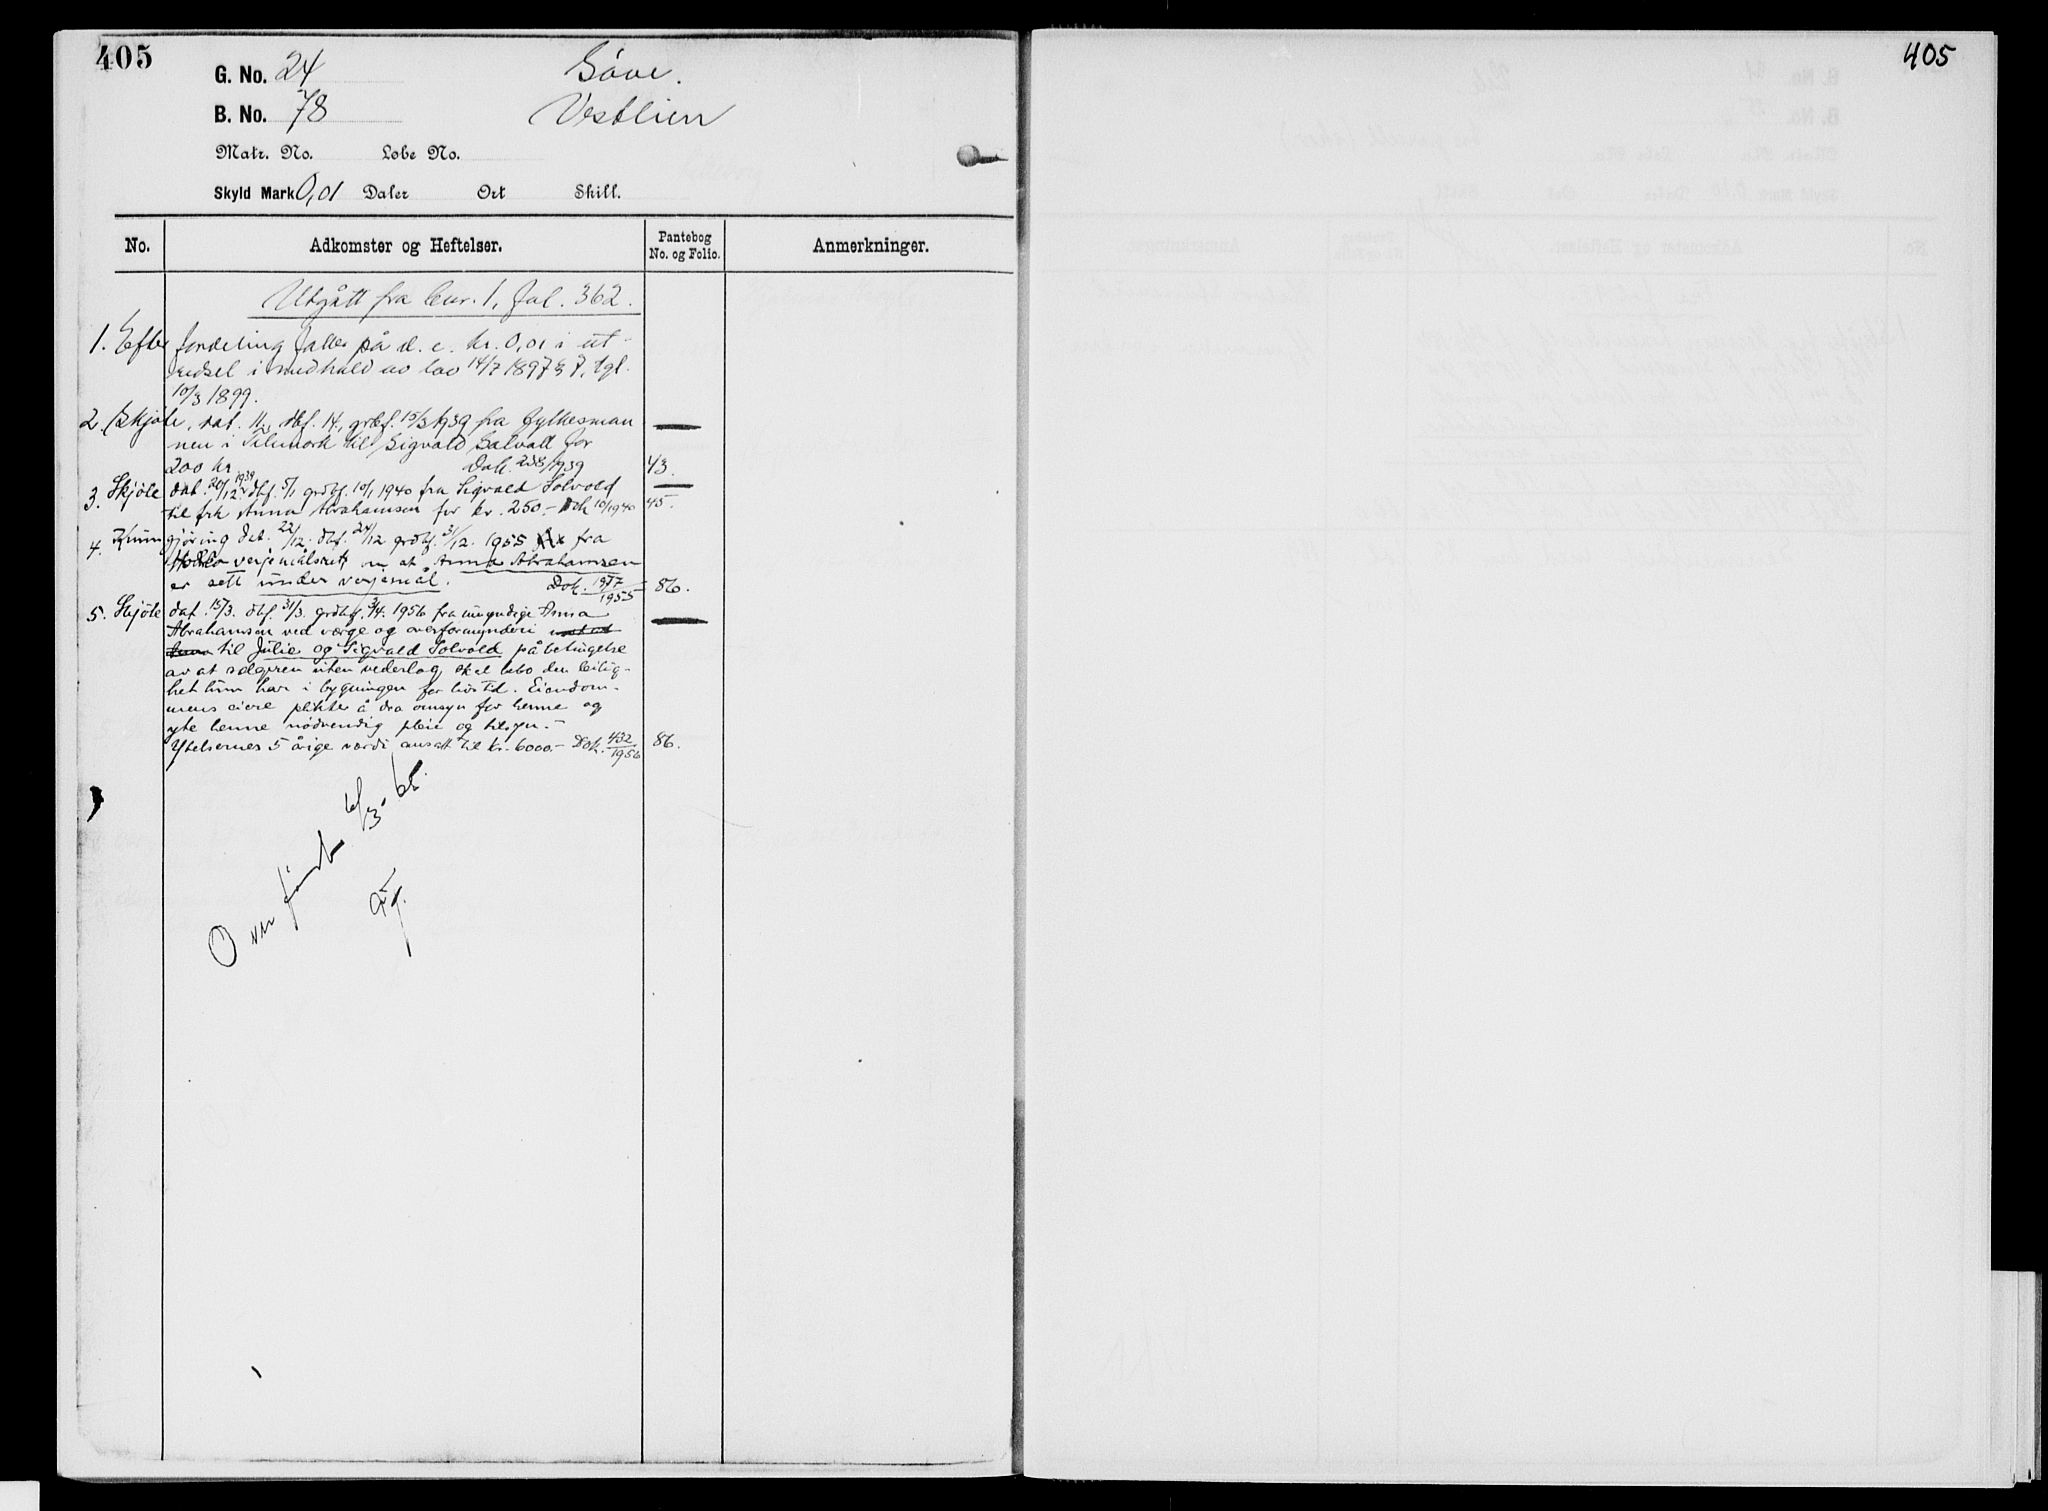 405
G. No. 24 Söve.
B. No. 78 Vestlien
Matr. No. Løbe No.
Skyld Mark 0,01 Daler Ort Skill.
No. Adkomster og Heftelser. Pantebog No. og Folio. Anmerkninger.
Utgått fra bnr. 1, fol. 362.
1. Efter fordeling faller på d. e. kr. 0,01 i ut-
redsel i medhald av lov 14/7 1897 § 7, tgl.
10/3 1899.
2. Skjöte, dat. 11., dbf. 14., grbf. 15/3 1939 fra fylkesman
nen i Telemark til Sigvald Solvoll for
200 kr. Dok. 238/1939 43.
3. Skjöte dat. 20/12 1939. dbf. 5/1 grdbf. 10/1 1940 fra Sigvald Solvold
til frk Anna Abrahamsen for kr. 250.- Dok 10/1940 45.
4. Kunngjöring dat. 22/12. dbf. 24/12 grdbf. 31/12. 1955 fra
Holla verjemålsrett om at Anna Abrahamsen
er sett under verjemål. Dok. 1977/1955 86.
5. Skjöte dat. 15/3. dbf. 31/3. grdbf. 3/4. 1956 fra umyndige Anna
Abrahamsen ved værge og overformynderi
til Julie og Sigvald Solvold på betingelse
av at selgeren uten vederlag skal bebo den leilig-
het hun har i bygningen for livstid. Eiendom-
mens eiere plikter å dra omsyn for henne og
yte henne nödvendig pleie og tilsyn.-
Ytelsernes 5 årige verdi ansatt til kr. 6000.- Dok. 432/1956 86.
Overfört 6/3-
405